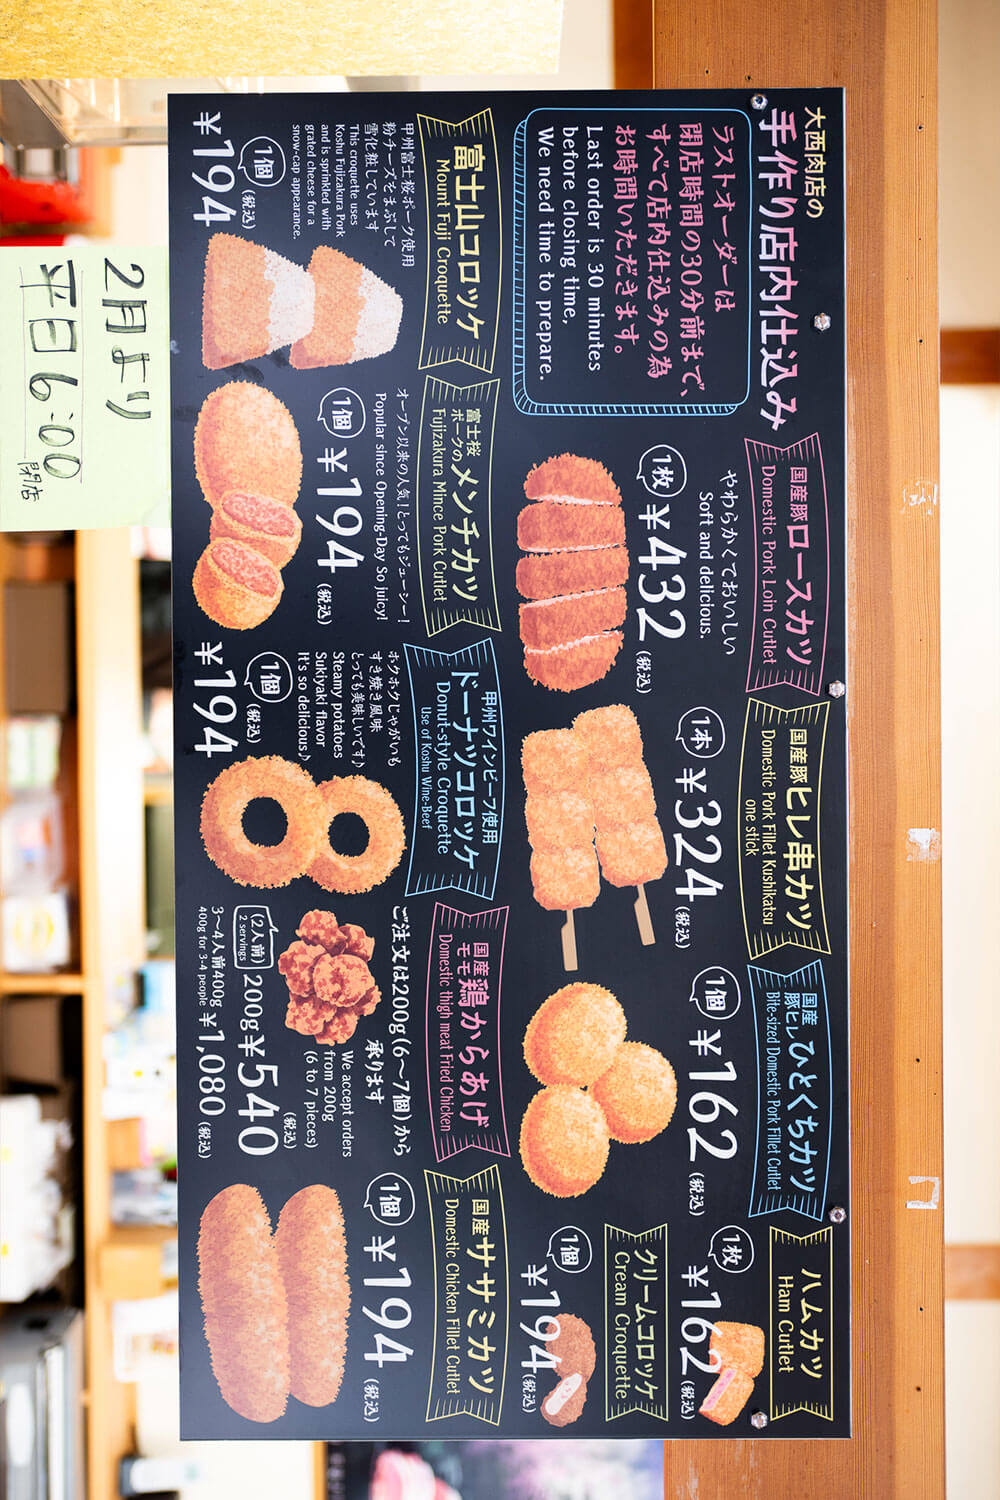 大西肉店の
手作り店内仕込み
ラストオーダーは
閉店時間の30分前まで、
すべて店内仕込みの為
お時間いただきます。
Last order is 30 minutes
before closing time,
We need time to prepare.
国産豚ロースカツ
Domestic Pork Loin Cutlet
やわらかくておいしい
Soft and delicious.
1枚 ¥432 (税込)
国産豚ヒレ串カツ
Domestic Pork Fillet Kushikatsu
one stick
1本 ¥324 (税込)
国産豚ヒレひとくちカツ
Bite-sized Domestic Pork Fillet Cutlet
1個 ¥162 (税込)
ハムカツ
Ham Cutlet
1枚 ¥162 (税込)
クリームコロッケ
Cream Croquette
1個 ¥194 (税込)
富士山コロッケ
Mount Fuji Croquette
甲州富士桜ポーク使用
粉チーズをまぶして
雪化粧しています
This croquette uses
Koshu Fujizakura Pork
and is sprinkled with
grated cheese for a
snow-cap appearance.
1個 (税込)
¥194
富士桜ポークのメンチカツ
Fujizakura Mince Pork Cutlet
オープン以来の人気!とってもジューシー!
Popular since Opening-Day So juicy!
1個 ¥194 (税込)
甲州ワインビーフ使用
ドーナツコロッケ
Donut-style Croquette
Use of Koshu Wine-Beef
ホクホクじゃがいも
すき焼き風味
とっても美味しいです♪
Steamy potatoes
Sukiyaki flavor
It's so delicious♪
1個 (税込)
¥194
国産モモ鶏からあげ
Domestic thigh meat Fried Chicken
ご注文は200g(6〜7個)から
承ります
We accept orders
from 200g
(6 to 7 pieces)
(2人前) 200g ¥540 (税込)
2 servings
3〜4人前400g ¥1,080 (税込)
400g for 3-4 people
国産ササミカツ
Domestic Chicken Fillet Cutlet
1個 ¥194 (税込)
2月より
平日6:00
閉店